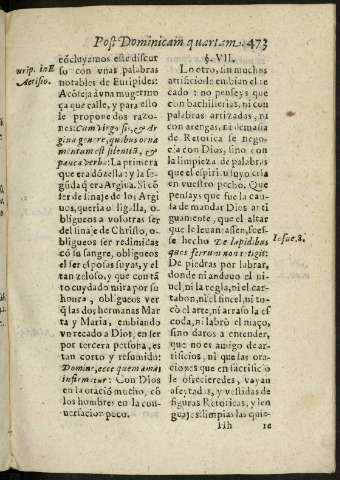 Post Dominicam quartam. 473
cõcluyamos este discur
so con vnas palabras
notables de Euripides:
Acõseja à vna muger mo
ça que calle, y para ello
le propone dos razo-
nes: Cum virgo sis, & Ar
giua genere, quibus orna
mentum est silentiũ, &
pauca verba: La primera
que era dõzella: y la se-
gũda q̃ era Argiua. Si cõ
ser de linaje de los Argi
uos,
obligueos a vosotras ser
del linaje de Christo, o-
bligueos ser redimidas
cõ su sangre, obligueos
el ser esposas suyas, y el
tan zeloso, y que con tã
to cuydado mira por su
honra, obligueos ver
q̃ las dos hermanas Mar
ta y Maria, embiando
vn recado a Dios, en ser
por tercera persona, es
tan corto y resumido:
Domine, ecce quem amas
infirmatur: Con Dios
en la oració mucho, cõ
los hombres en la con-
uersacion poco.
urip. in E
Actisio.
§. VII.
Lo otro, sin muchos
artificios le embian el re
cado: no penseys que
con bachillerias, ni con
palabras artizadas, ni
con arengas, ni demasia
de Retorica se nego-
cia con Dios, sino con
la limpieza de palabras
que el espiritu suyo cria
en vuestro pecho. Que
pensays que fue la cau-
sa de mandar Dios anti
guamente, que el altar
que le leuantassen, fues-
se hecho De lapidibus
ques ferrum non tetigit:
De piedras por labrar,
donde ni anduuo el ni-
uel, ni la regla, ni el car-
tabon, ni el sincel, ni to-
cò el arte, ni arraso la es
coda, ni labrò el maço,
sino daros a entender,
que no es amigo de ar-
tificios, ni que las ora-
ciones que en sacrificio
le ofrecieredes, vayan
afeytadas, y vestidas de
figuras Retoricas, y len
guajes: limpias las quie-
Iosue. 8.
Hh
re